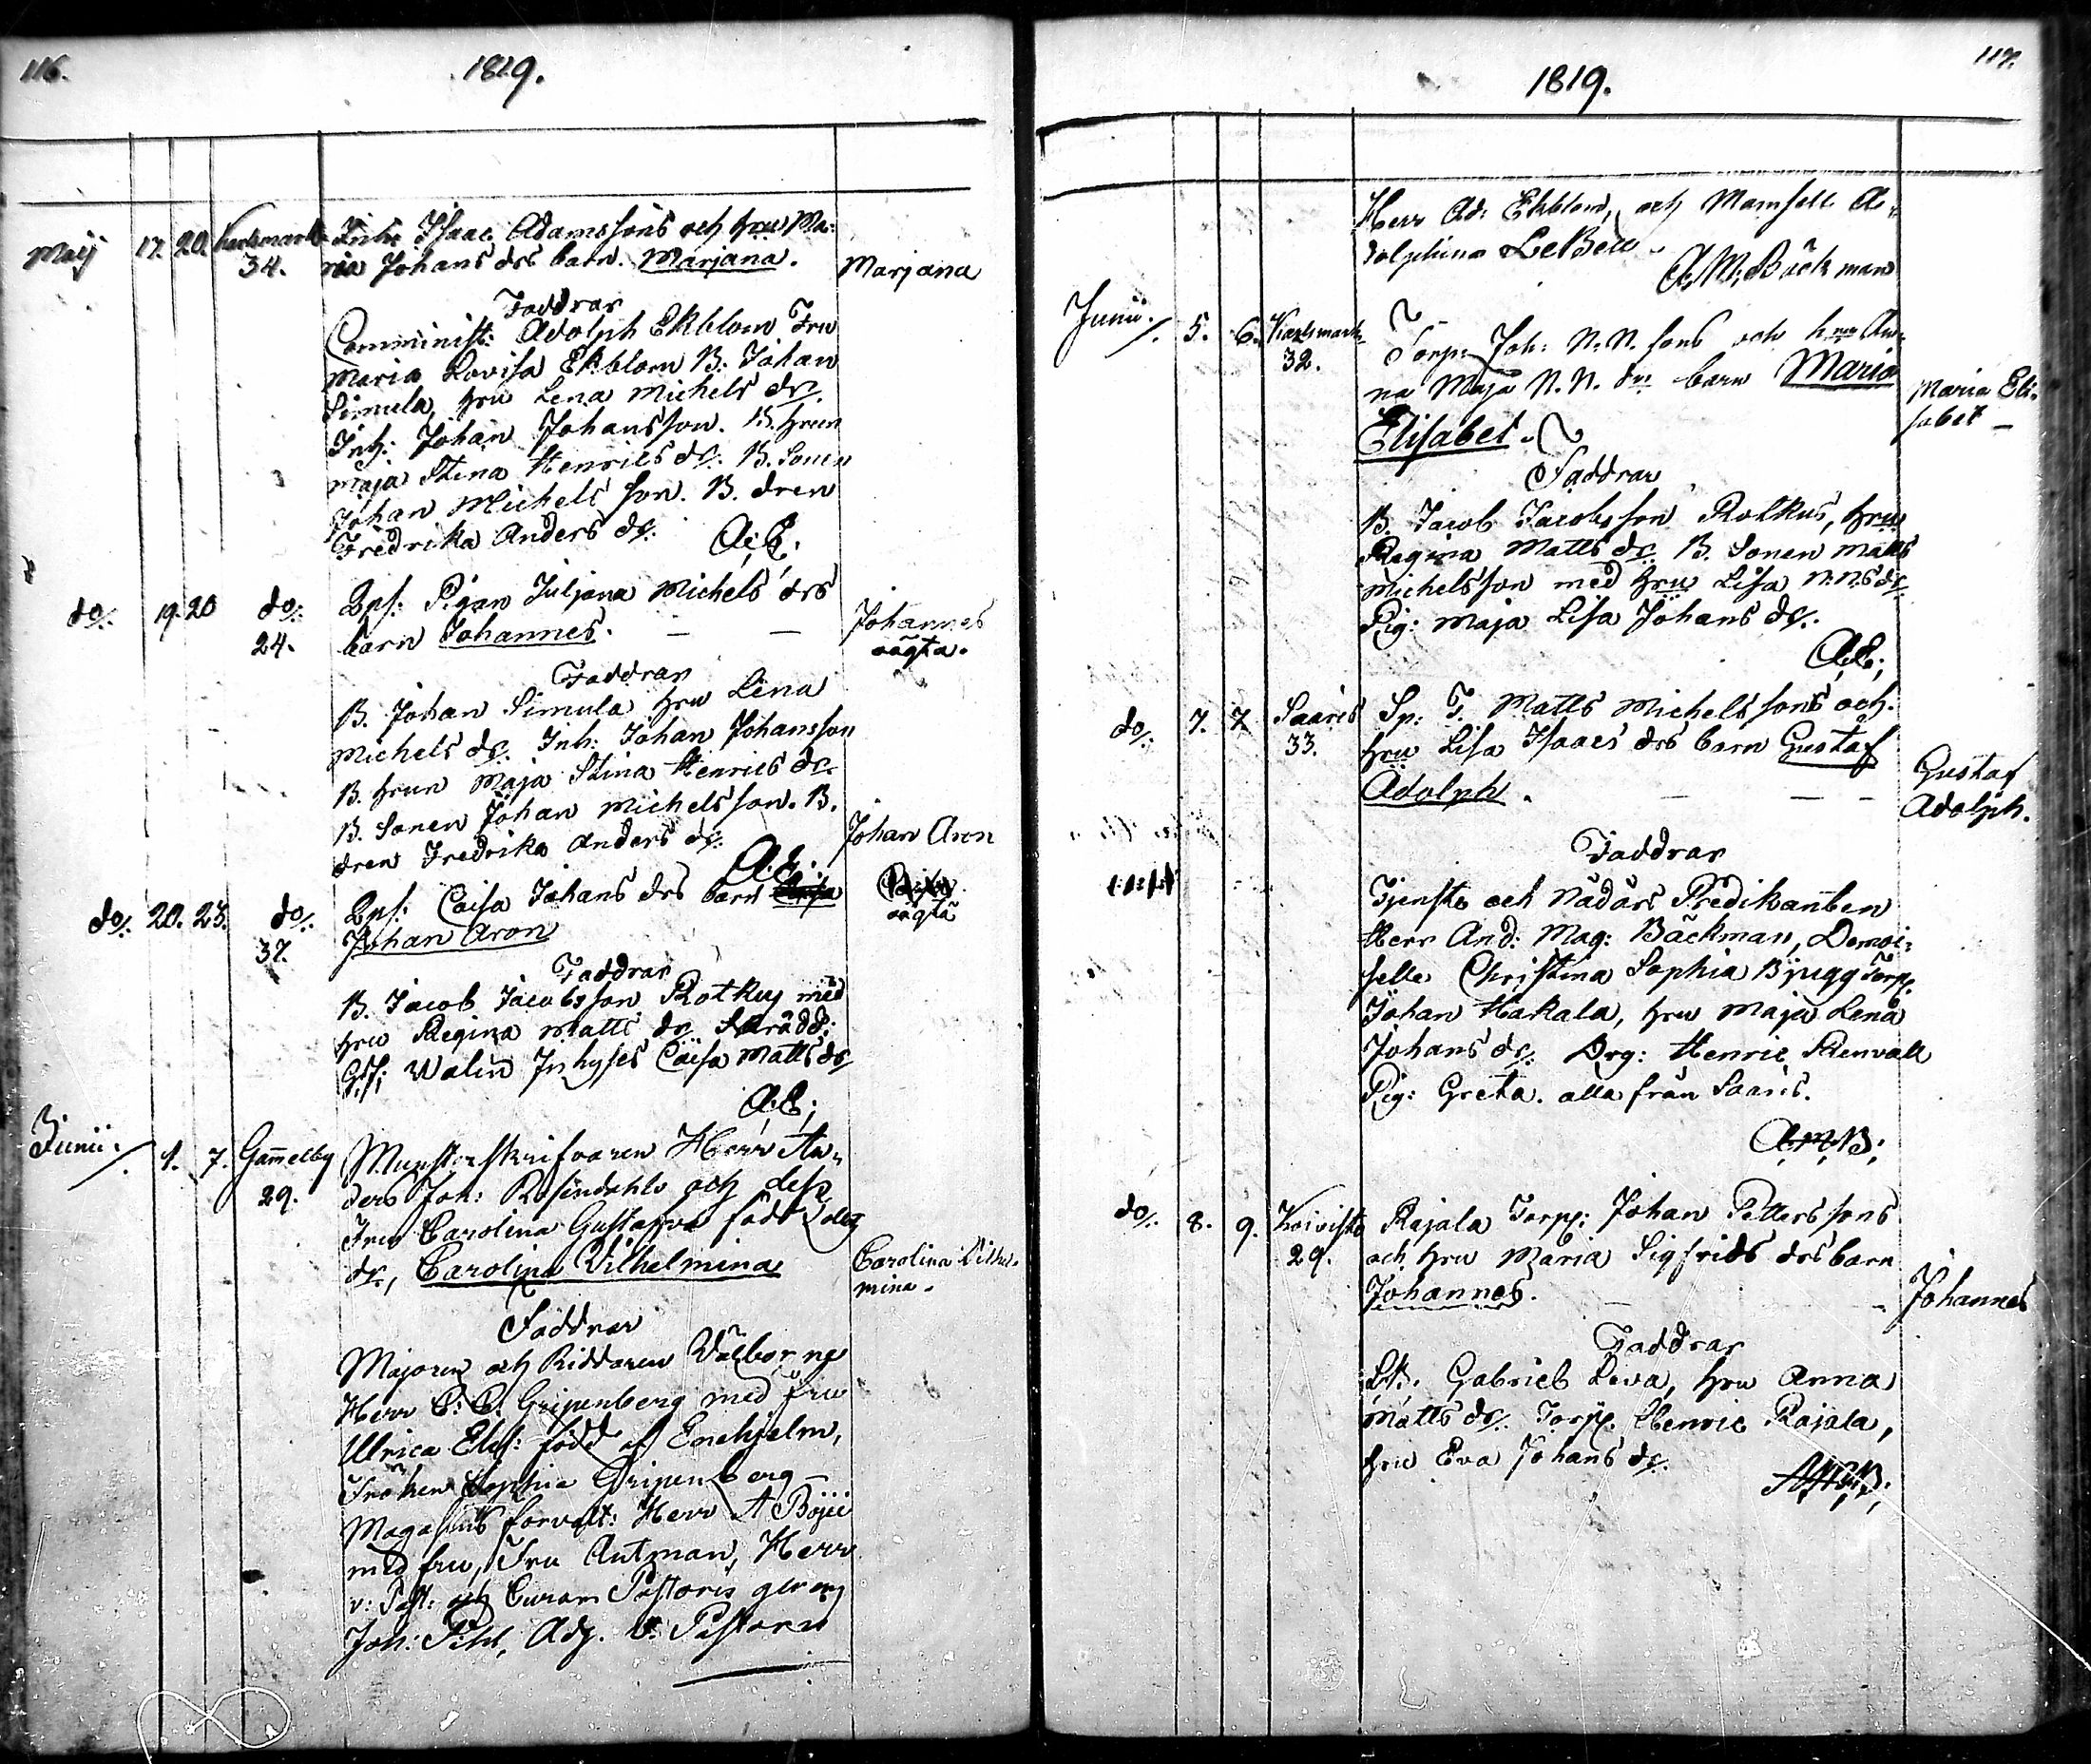 116.
1819.
Maij 17. 20. Karlsmark 34. Inh: Isaac Adamssons och hru Ma-
ria Johans drs barn. Marjana. Marjana
Faddrar
Comminist: Adolph Ekblom Fru
Maria Lovisa Ekblom B. Johan
Simula, hru Lena Michels dr.
Inh: Johan Johansson. B. hrun
Maja Stina Henrics dr. B. Sonen
Johan Michels son. B. dren
Fredrika Anders dr. A.E.
do. 19. 20 do. 24. Pigan Juljana Michels drs
barn Johannes. Johannes
oägta.
Faddrar
B. Johan Simula hru Lena
Michels dr. Inh: Johan Johansson
B. hrun Maja Stina Henrics dr.
B. Sonen Johan Michelsson. B.
dren Fredrika Anders dr.
A.E.
do. 20. 23. do. 37. Caisa Johans drs barn
Johan Aron Johan Aron
oägta
Faddrar
B. Jacob Jacobsson Rotkus med
hru Regina Matts dr Skrädd:
Walin Inhyses Caisa Matts dr
A.E.
Junii. 1. 7. Gamelby 29. Munsterskrifvaren Herr An-
ders Joh: Rosendahls och dess
Fru Carolina Gustafva född
dr, Carolina Vilhelmina Carolina Vilhel-
mina.
Faddrar
Majoren och Riddaren Välborne
Herr Gripenberg med fru
Ulrica Elis: född af Enehjelm,
Fröken Sophia Gripenberg
Magasins förvalt: Herr A Böjie
med fru, Fru Antman, Herr
v: Past: och Curam Pastoris gerens
Joh: Pihl, Adj. V. Pastorn
117.
1819.
Herr Ad: Ekblom, och Mamsell A-
dolphina LeBell.
A. M. Bäckman
Junii. 5. 6. Karlsmark 32. Torp: Joh: N.N. sons och hru An-
na Maja N.N. drs barn Maria
Elisabet. Maria Eli-
sabet
Faddrar
B. Jacob Jacobsson Rotkus, hru
Regina Matts dr. B. Sonen Matts
Michelsson med hru Lisa N.Ns dr
Pig: Maja Lisa Johans dr.
A.E.
do. 7. 7 Saaris 33. Sp: T. Matts Michels sons och
hru Lisa Isaacs drs barn Gustaf
Adolph. Gustaf
Adolph.
Faddrar
Tjenste och Nådårs Predikanten
Herr And: Mag: Bäckman, Demoi-
selle Christina Sophia Bjugg Torp.
Johan Hakala, hru Maja Lena
Johans dr. Drg: Henric Renvall
Pig: Greta. alla från Saaris.
A.M.B.
do. 8. 9. Koivisto 29. Rajala Torp: Johan Petterssons
och hru Maria Sigfrids drs barn
Johannes. Johannes
Faddrar
Gabriel Leva, hru Anna
Matts dr. Torp. Henric Rajala,
hru Eva Johans dr.
A.M.B.